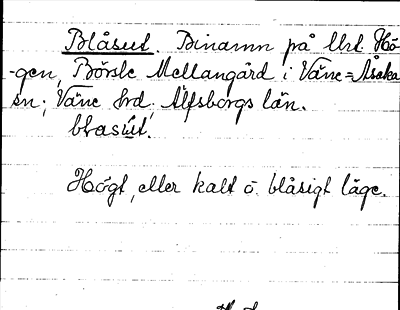 Blåsut. Binamn på Utel. Hö-
-gen, Börsle Mellangård i Väne-Åsaka
sn; Väne hrd, Älfsborgs län.
blasút.
Högt, eller kalt o. blåsigt läge.